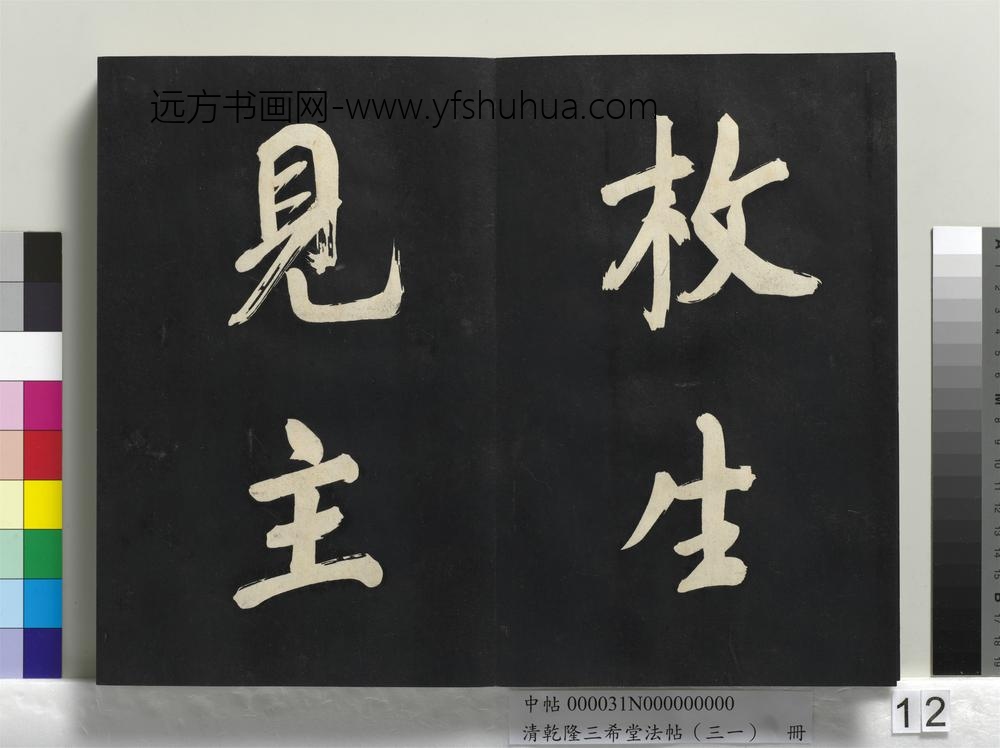 远方书画网-www.yfshuhua.com
枚生
見主
中帖 000031N000000000
清乾隆三希堂法帖（三一） 冊
12